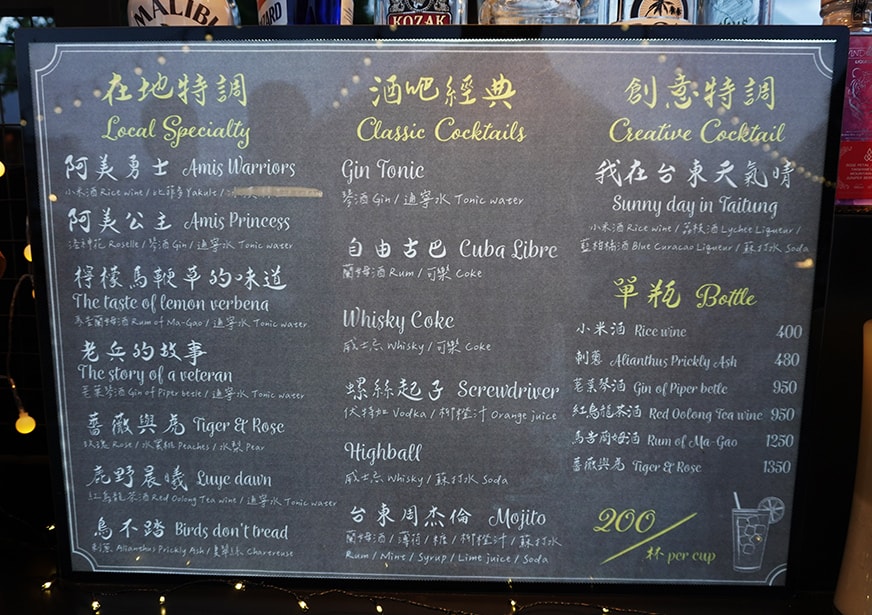 MALIBU
KOZAK
在地特調
Local Specialty
阿美勇士 Amis Warriors
小米酒 Rice wine / 比菲多 Yakult /
阿美公主 Amis Princess
洛神花 Roselle / 琴酒 Gin / 通寧水 Tonic water
檸檬馬鞭草的味道
The taste of lemon verbena
馬告蘭姆酒 Rum of Ma-Gao / 通寧水 Tonic water
老兵的故事
The story of a veteran
荖葉琴酒 Gin of Piper betle / 通寧水 Tonic water
薔薇與虎 Tiger & Rose
玫瑰 Rose / 水蜜桃 Peaches / 水梨 Pear
鹿野晨曦 Luye dawn
紅烏龍茶酒 Red Oolong Tea wine / 通寧水 Tonic water
鳥不踏 Birds don't tread
刺蔥 Alianthus Prickly Ash / 夏翠絲 Chareteuse
酒吧經典
Classic Cocktails
Gin Tonic
琴酒 Gin / 通寧水 Tonic water
自由古巴 Cuba Libre
蘭姆酒 Rum / 可樂 Coke
Whisky Coke
威士忌 Whisky / 可樂 Coke
螺絲起子 Screwdriver
伏特加 Vodka / 柳橙汁 Orange juice
Highball
威士忌 Whisky / 蘇打水 Soda
台東周杰倫 Mojito
蘭姆酒 / 薄荷 / 糖 / 柳橙汁 / 蘇打水
Rum / Mint / Syrup / Lime juice / Soda
創意特調
Creative Cocktail
我在台東天氣晴
Sunny day in Taitung
小米酒 Rice wine / 荔枝酒 Lychee Liqueur /
藍柑橘酒 Blue Curacao Liqueur / 蘇打水 Soda
單瓶 Bottle
小米酒 Rice wine 400
刺蔥 Alianthus Prickly Ash 480
荖葉琴酒 Gin of Piper betle 950
紅烏龍茶酒 Red Oolong Tea wine 950
馬告蘭姆酒 Rum of Ma-Gao 1250
薔薇與虎 Tiger & Rose 1350
200 / 杯 per cup